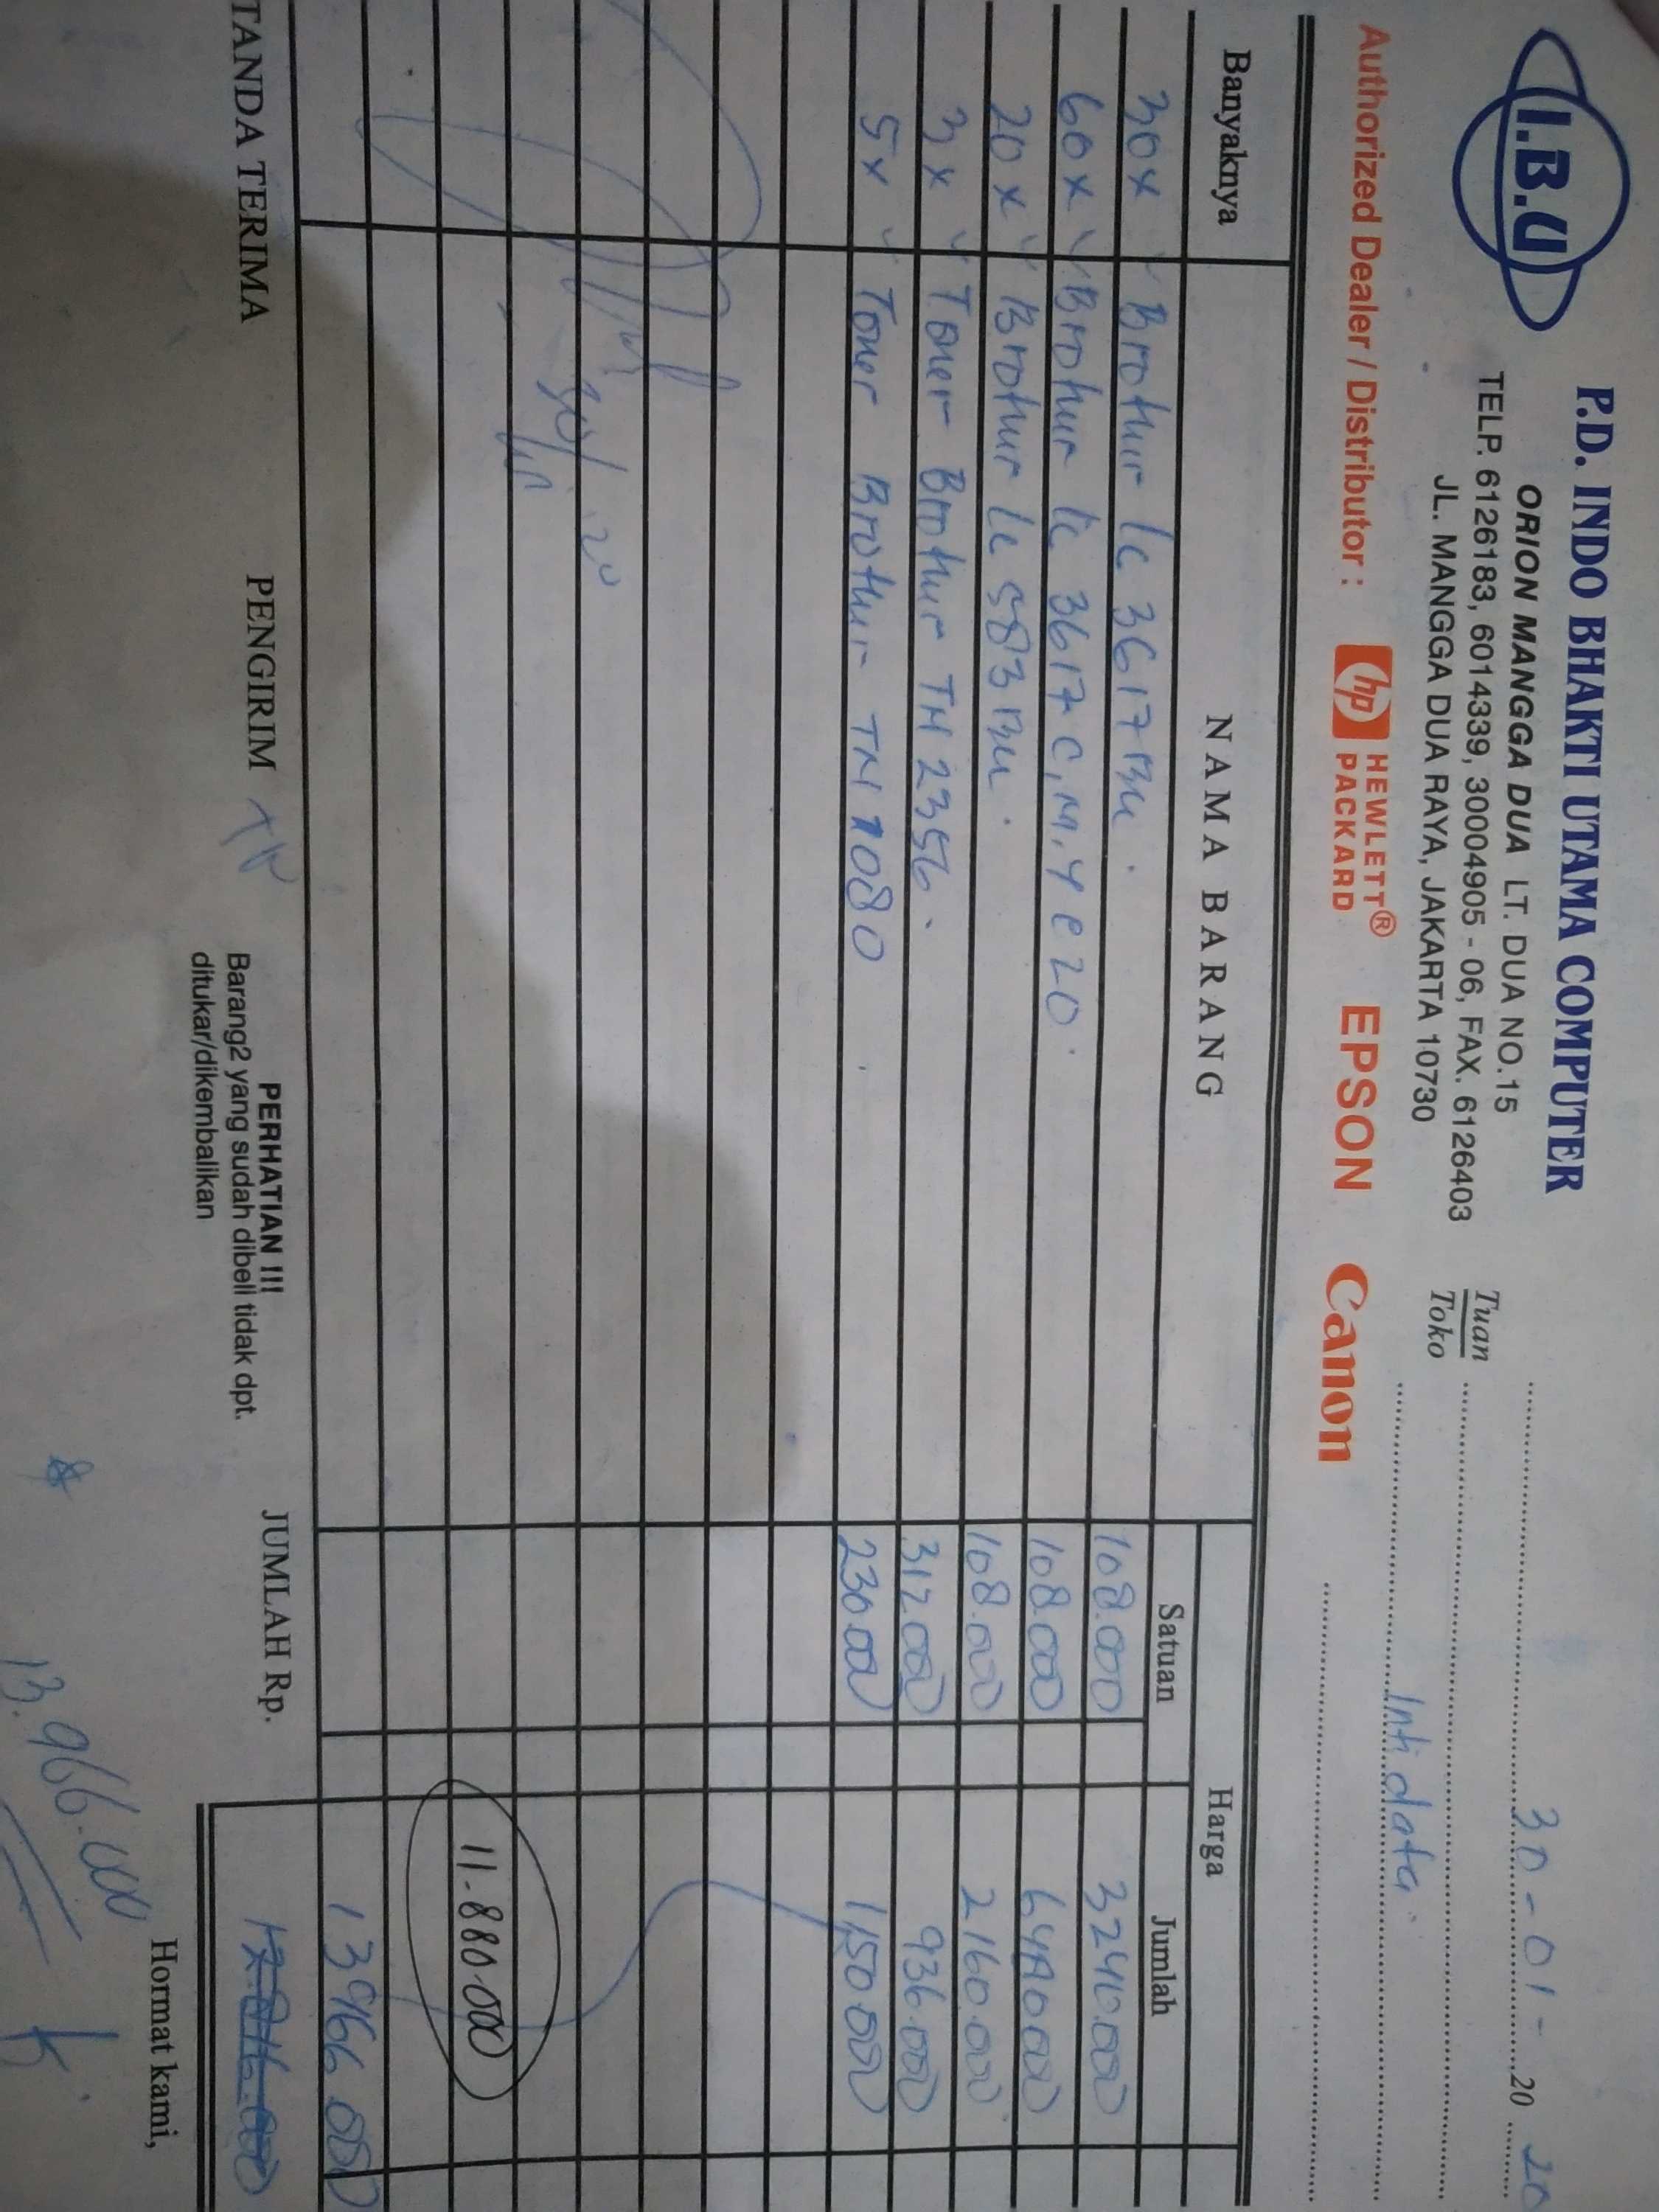 I.B.U
P.D. INDO BHAKTI UTAMA COMPUTER
ORION MANGGA DUA LT. DUA NO.15
TELP. 6126183, 6014339, 3004905 - 06, FAX. 6126403
JL. MANGGA DUA RAYA, JAKARTA 10730
30-01-20 20
Tuan
Toko
Inti data
Authorized Dealer / Distributor : hp HEWLETT® PACKARD EPSON Canon
Banyaknya NAMA BARANG Harga
Satuan Jumlah
30x Brother Lc 3617 BK. 108.000 3240.000
60x Brother Lc 3617 C, M, Y e 20. 108.000 6480.000
20x Brother Lc 583 BK. 108.000 2160.000
3x Toner Brother TN 2356. 312.000 936.000
5x Toner Brother TN 1080. 230.000 1,150.000
11.880.000
13966.000
TANDA TERIMA PENGIRIM
PERHATIAN !!!
Barang2 yang sudah dibeli tidak dpt.
ditukar/dikembalikan
JUMLAH Rp.
13.966.000
Hormat kami,